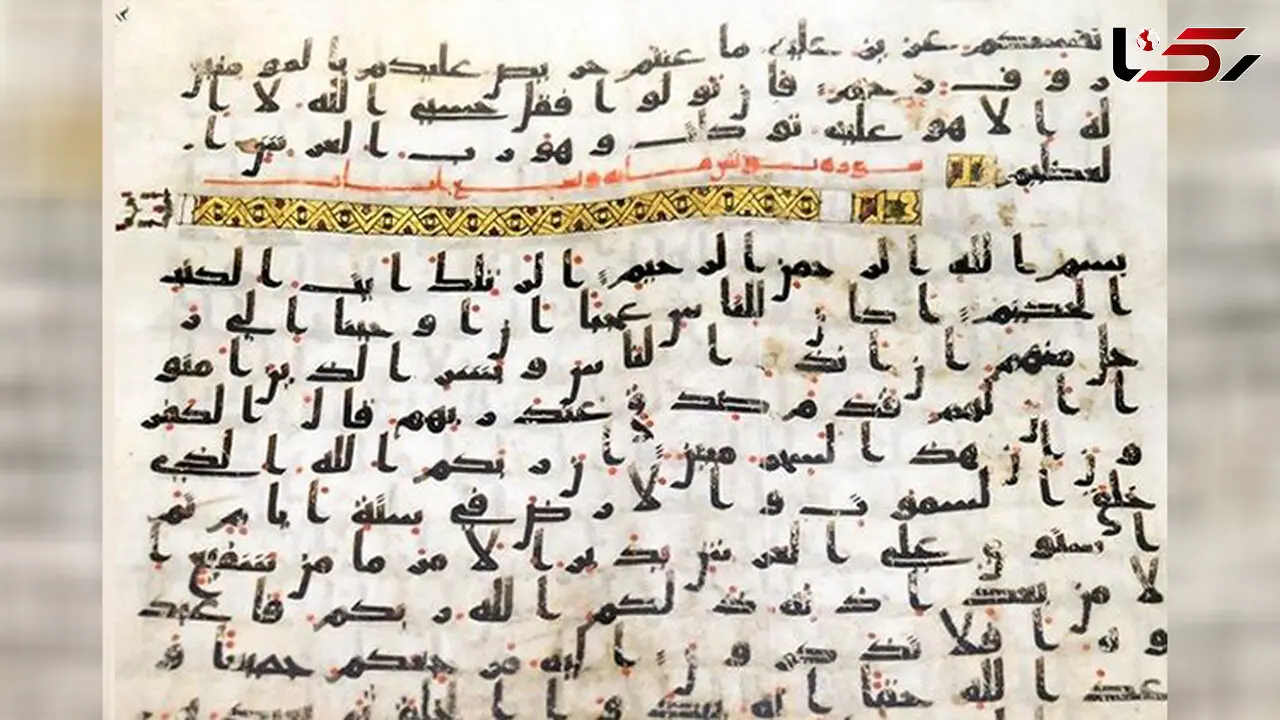 رکنا
نفسكم عزيز عليه ما عنتم حريص عليكم بالمومنين
روف رحيم فان تولوا فقل حسبي الله لا ا
له الا هو عليه توكلت وهو رب العرش ا
لعظيم
سورة يونس مايه وتسع ايات
بسم الله الرحمن الرحيم الر تلك ايت الكتب
الحكيم اكان للناس عجبا ان اوحينا الي ر
جل منهم ان انذر الناس وبشر الذين امنو
ا ان لهم قدم صدق عند ربهم قال الكفر
ون ان هذا لسحر مبين ان ربكم الله الذي
خلق السموت والارض في ستة ايام ثم
استوي علي العرش يدبر الامر ما من شفيع ا
لا من بعد اذنه ذلكم الله ربكم فاعبد
وه افلا تذكرون اليه مرجعكم جميعا و
عد الله حقا انه يبدوا الخلق ثم